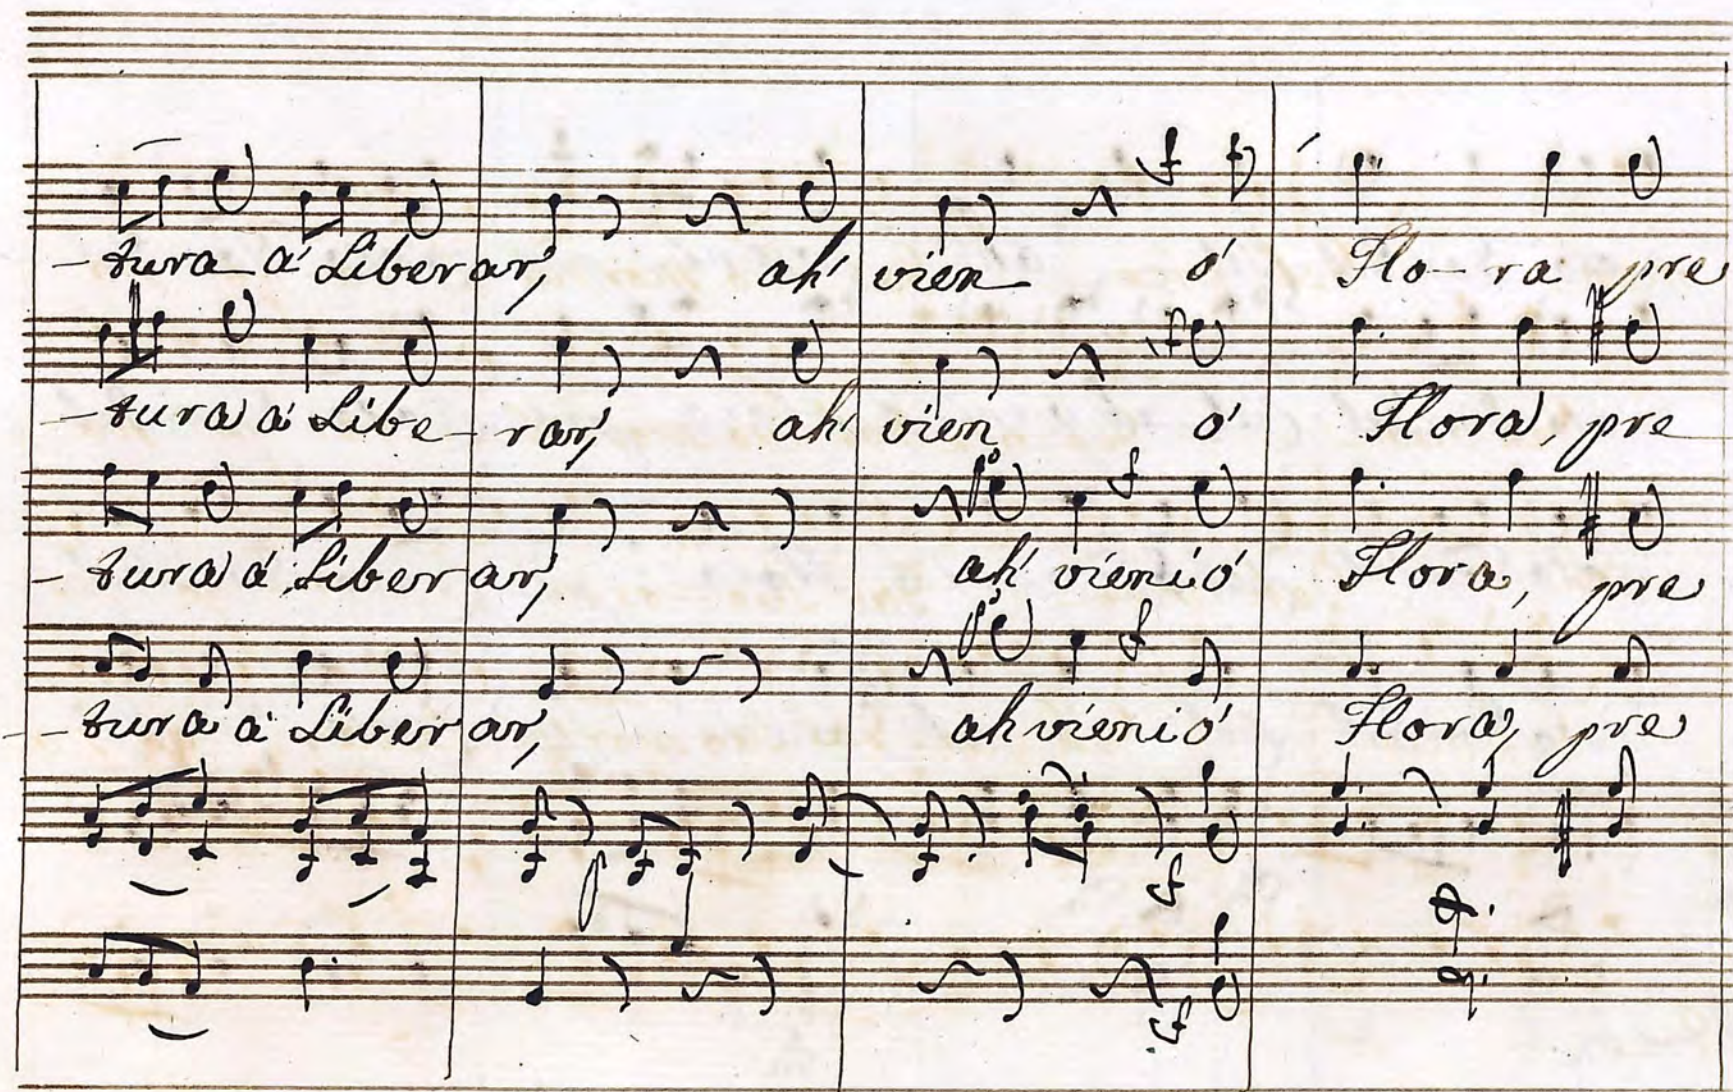 - tura a' Liberar, ah' vien o' Flo- ra pre
- tura a' Libe- rar, ah' vien o' Flora, pre
- tura a' Liberar, ah' vieni ó Flora, pre
- tura a' Liberar, ah vieni ó Flora, pre